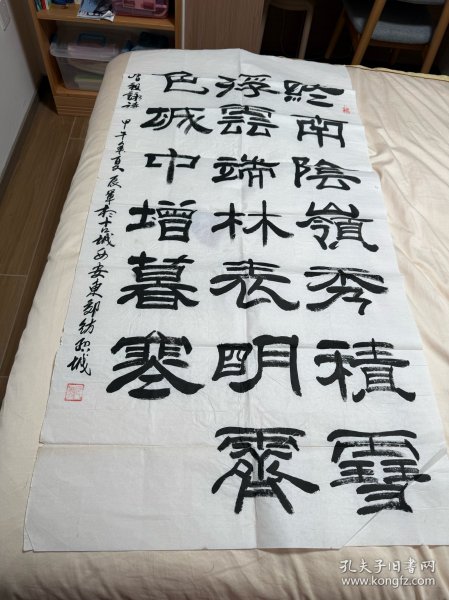 終南陰嶺秀積雪
浮雲端林表明霽
色城中增暮寒
唐祖詠詩 甲午年夏 於古城西安東郊紡织城
孔夫子旧书网
www.kongfz.com